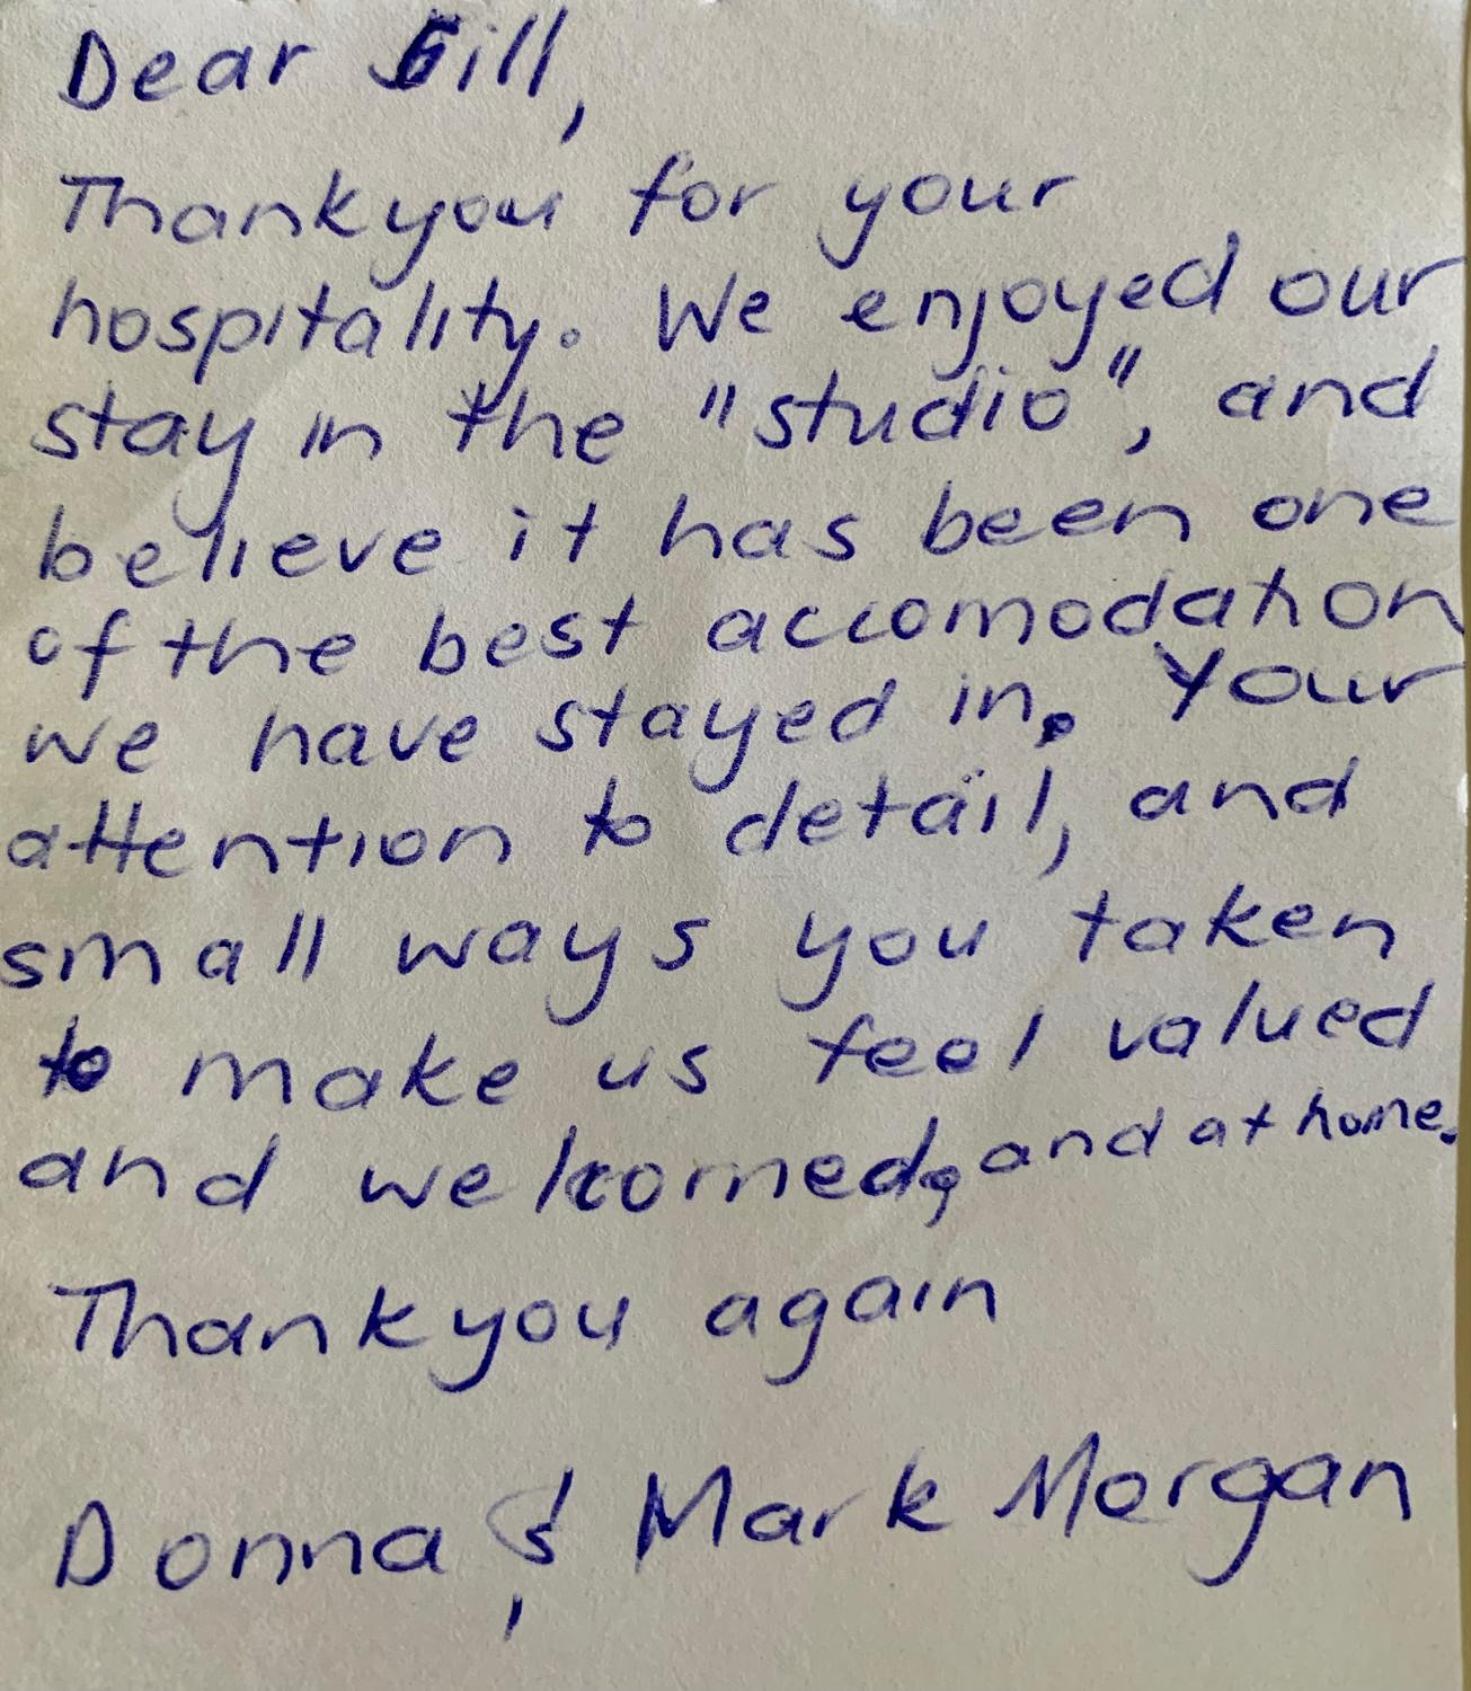 Dear Gill,
Thankyou for your
hospitality. We enjoyed our
stay in the "studio", and
believe it has been one
of the best accomodation
we have stayed in. Your
attention to detail, and
small ways you taken
to make us feel valued
and welcomed, and at home.
Thankyou again
Donna & Mark Morgan